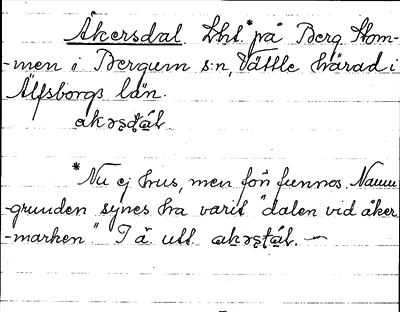 Åkersdal. Lht.* på Berg. Stom-
-men i Bergum s:n, Vättle härad i
Älfsborgs län.
akəṣṭál.
*Nu ej hus, men förr funnos. Namn
-grunden synes ha varit "dalen vid åker
-marken". I ä utt. akəṣṭál. —